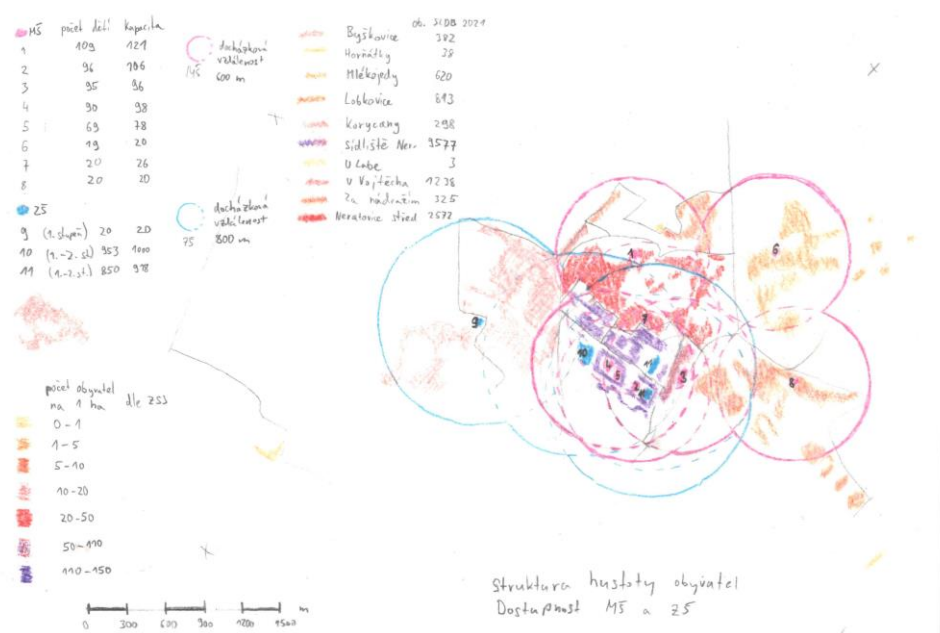 MŠ počet dětí kapacita
1 109 121
2 96 106
3 95 96
4 90 98
5 69 78
6 19 20
7 20 26
8 20 20
ZŠ
9 (1. stupeň) 20 20
10 (1.-2. st) 953 1000
11 (1.-2. st.) 850 978
docházková
vzdálenost
MŠ 600 m
docházková
vzdálenost
ZŠ 800 m
ob. SLDB 2021
Byškovice 382
Horňátky 38
Mlékojedy 620
Lobkovice 813
Korycany 298
Sídliště Ner. 9577
U Labe 3
U Vojtěcha 1238
Za nádražím 325
Neratovice střed 2572
počet obyvatel
na 1 ha dle ZSJ
0-1
1-5
5-10
10-20
20-50
50-110
110-150
0 300 600 900 1200 1500 m
1
6
9
7
10
11
4
5
3
2
8
Struktura hustoty obyvatel
Dostupnost MŠ a ZŠ